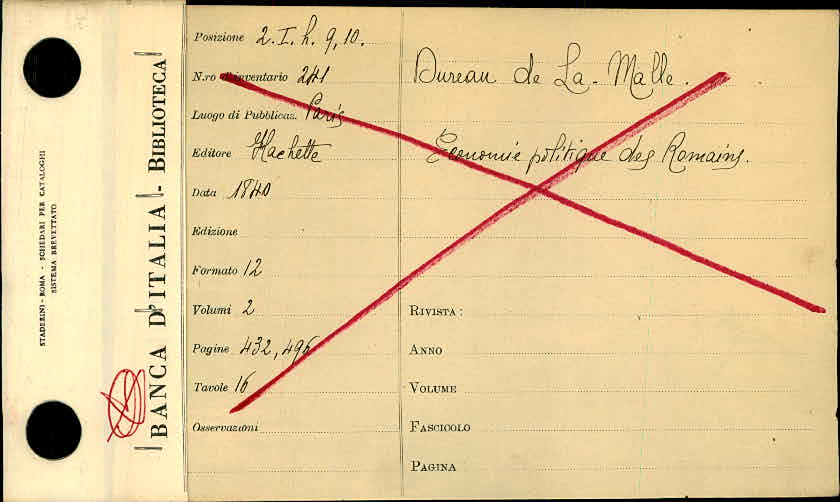 STADERINI - ROMA - SCHEDARI PER CATALOGHI
SISTEMA BREVETTATO
BANCA D'ITALIA - BIBLIOTECA
Posizione 2. I. h. 9, 10.
N.ro d'inventario 241
Luogo di Pubblicaz. Paris
Editore Hachette
Data 1840
Edizione
Formato 12
Volumi 2
Pagine 432, 496
Tavole 16
Osservazioni
Dureau de La-Malle.
Économie politique des Romains.
RIVISTA:
ANNO
VOLUME
FASCICOLO
PAGINA